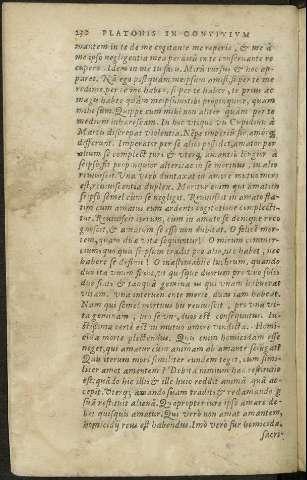 230 PLATONIS IN CONVIVIUM
mantem in te de me cogitante me reperio, & me à
me ipso negligentia mea perditū in te conseruante re
cupero. Idem in me tu facis. Mirū rursus & hoc ap-
paret. Nā ego postquàm meipsum amisi, si per te me
redimo, per te me habeo, si per te habeo, te prius ac
magis habeo quàm meipsum, tibi propinquior, quàm
mihi sum. Quippe cum mihi non aliter quàm per te
medium inhæream. In hoc utique uis Cupidinis à
Martis discrepat uiolentia. Nēpe imperiū sic & amor
differunt. Imperator per se alios possidet, amator per
alium se complectitur, & uterq; amantiū longior à
seipso fit propinquior alteri, ac in se mortuus, in altero
reuiuiscit. Vna uerò duntaxat in amore mutuo mors
est, reuiuiscentia duplex. Moritur enim qui amat in
se ipso semel cum se negligit. Reuiuiscit in amato sta-
tim cum amatus eum ardenti cogitatione complecti-
tur. Reuiuiscit iterum, cum in amato se denique reco
gnoscit, & amatum se esse non dubitat. O felicē mor-
tem, quam duæ uitæ sequuntur. O mirum commer-
cium, quo quis se ipsum tradit pro alio, nec habet, nec
habere se desinit. O inæstimabile lucrum, quando
duo ita unum fiunt, ut quisque duorum pro uno solo
duo fiat, & tanquā geminatus qui unam habuerat
uitam, una intercedente morte, duas iam habeat.
Nam qui semel mortuus bis reuiuiscit, pro una ui-
ta geminam, pro se uno, duos se est consequutus. Iu-
stissima certè est in mutuo amore uindicta. Homi-
cida morte plectendus. Quis enim homicidam esse
neget, qui amatur cum animam ab amante seiungat?
Quis iterum mori similiter eundem neget, cum simi-
liter amet amantem? Debita nimium hæc restitutio
est, quādo hic illi, & ille huic reddit animā quā ac-
cepit. Vterq; amando suam tradit, & redamando p
suā restituit alienā. Quapropter iure ipso amare de-
bet quisquis amatur. Qui uerò non amat amantem,
homicidij reus est habendus. Imò uerò fur, homicida,
sacri-